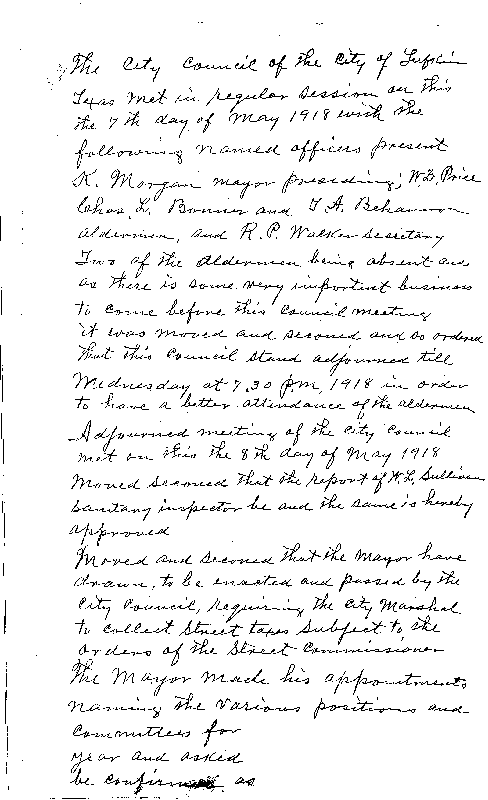 The City Council of the City of Lufkin
Texas met in regular session on this
the 7th day of May 1918 with the
following named officers present
K. Morgan mayor presiding; W.B. Price
Chas. L. Bonner and T A. 
aldermen, and R.P. Walker Secretary
Two of the aldermen being absent and
as there is some very important business
to come before this Council meeting
it was moved and second and so ordered
that this Council stand adjourned till
Wednesday at 7.30 P.M, 1918 in order
to have a better attendance of the aldermen
Adjourned meeting of the City Council
met on this the 8th day of May 1918
Moved second that the report of W.L. Sullivan
sanitary inspector be and the same is hereby
approved
Moved and second that the Mayor have
drawn, to be enacted and passed by the
City Council, requiring the City Marshal
to collect Street taxes subject to the
orders of the Street Commissioner
The Mayor made his appointments
naming the various positions and
committees for
year and asked
be confirmed as